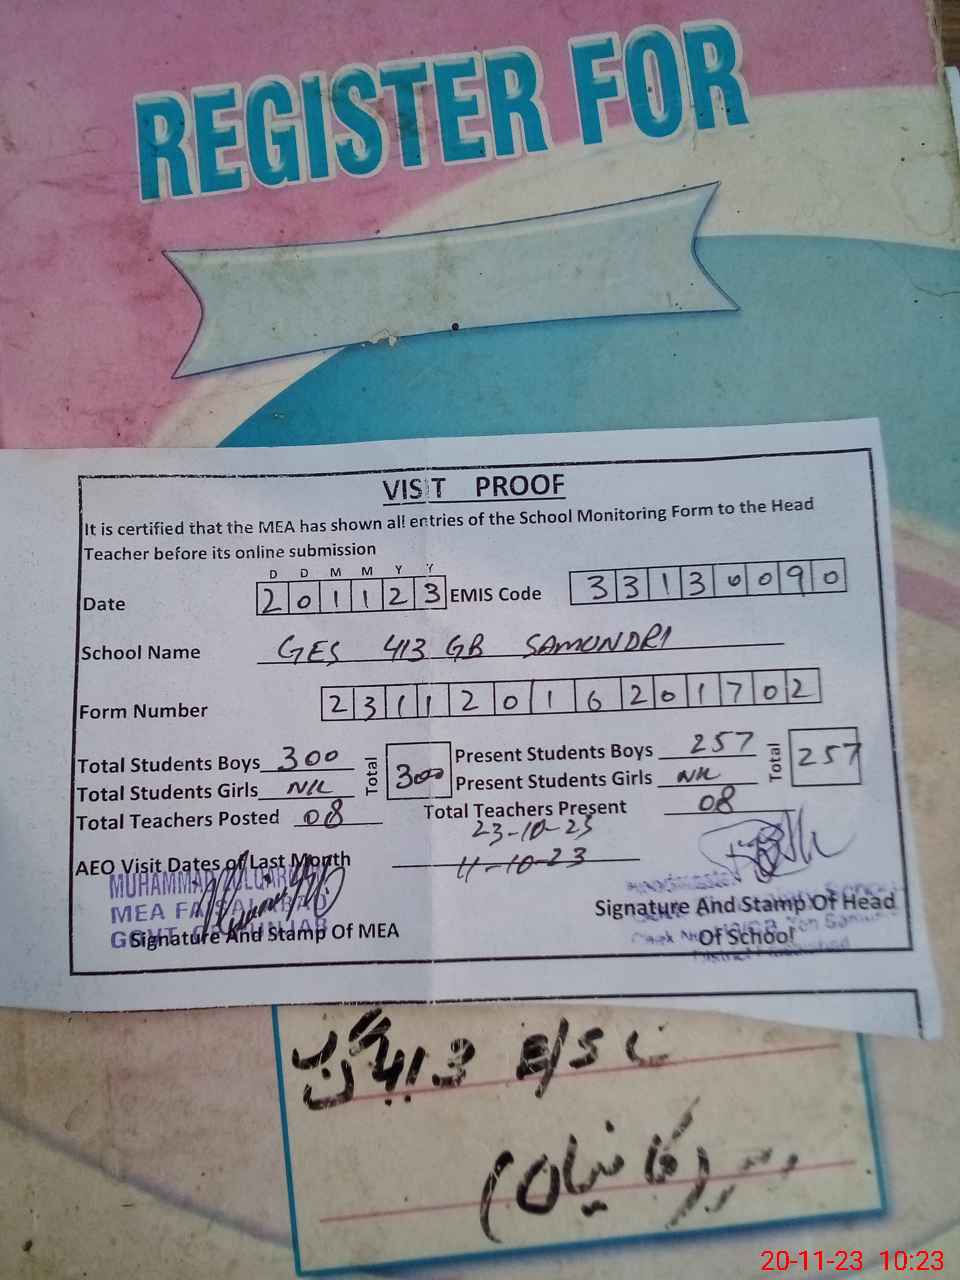 REGISTER FOR
VISIT PROOF
It is certified that the MEA has shown all entries of the School Monitoring Form to the Head
Teacher before its online submission
D D M M Y Y
Date 201123 EMIS Code 33130090
School Name GES 413 GB SAMUNDRI
Form Number 23112016201702
Total Students Boys 300 Total 300 Present Students Boys 257 Total 257
Total Students Girls NIL Present Students Girls NIL
Total Teachers Posted 08 Total Teachers Present 08
23-10-23
AEO Visit Dates of Last Month 11-10-23
MUHAMMAD
MEA FAISALABAD
GOVT OF PUNJAB
Signature And Stamp Of MEA
Signature And Stamp Of Head
Of School
413 E/S
20-11-23 10:23